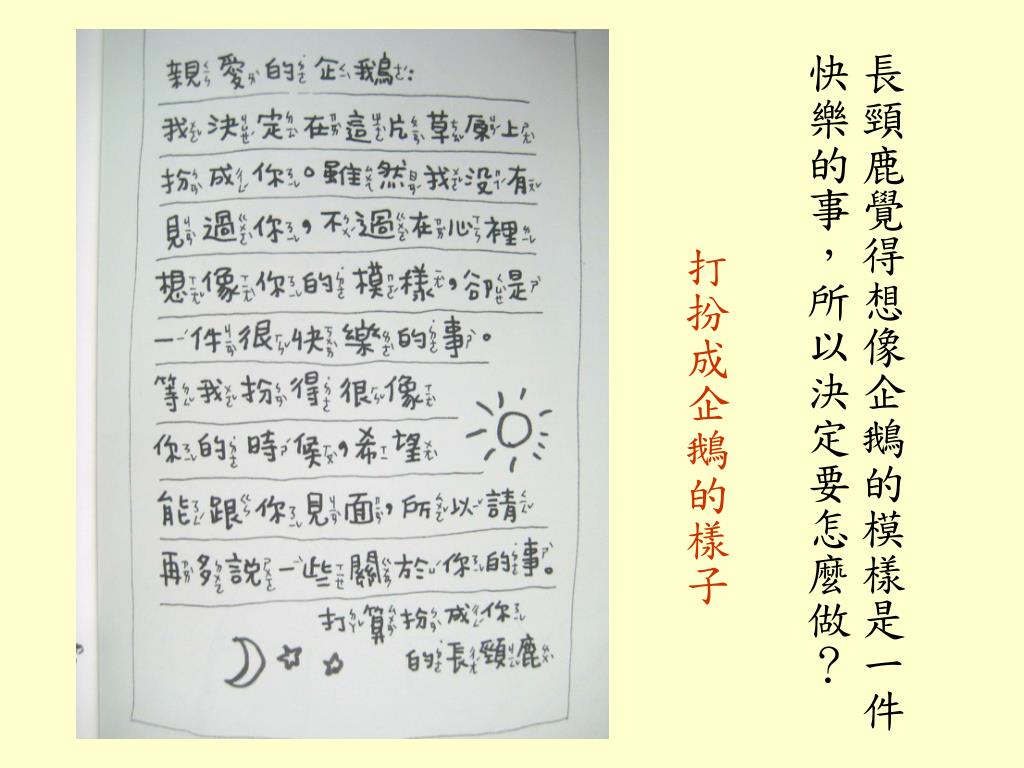 長頸鹿覺得想像企鵝的模樣是一件
快樂的事，所以決定要怎麼做？
打扮成企鵝的樣子
親愛的企鵝：
我決定在這片草原上
扮成你。雖然我沒有
見過你，不過在心裡
想像你的模樣，卻是
一件很快樂的事。
等我扮得很像
你的時候，希望
能跟你見面，所以請
再多說一些關於你的事。
打算扮成你
的長頸鹿